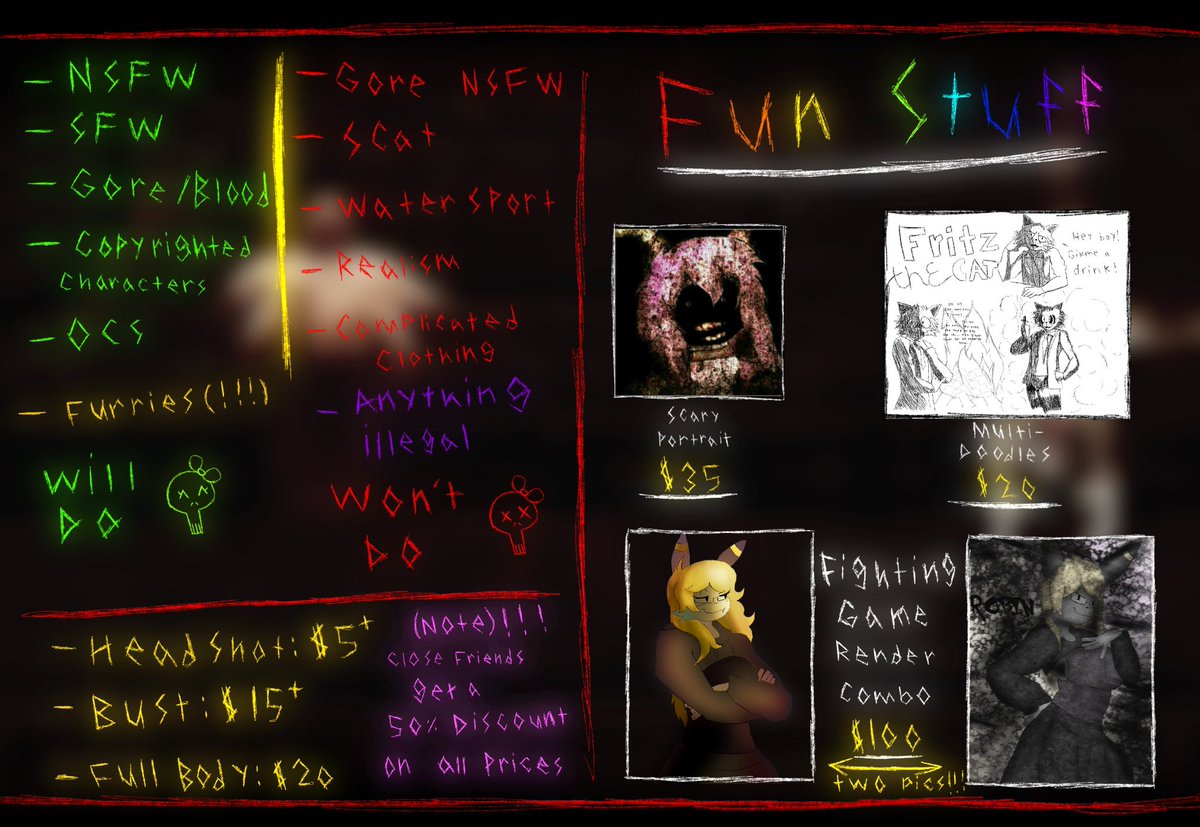 - NSFW
- SFW
- Gore/Blood
- Copyrighted
Characters
- OCs
- Furries(!!!)
Will
Do
- Gore NSFW
- Scat
- Watersport
- Realism
- Complicated
Clothing
- Anything
illegal
Won't
Do
- Headshot: $5+
- Bust: $15+
- Full Body: $20
(Note)!!!
Close Friends
get a
50% Discount
on all Prices
Fun Stuff
Scary
Portrait
$35
Fritz
the CAT
Hey boy!
Gimme a
drink!
Multi-
Doodles
$20
Fighting
Game
Render
Combo
$100
two pics!!!
ROBIN